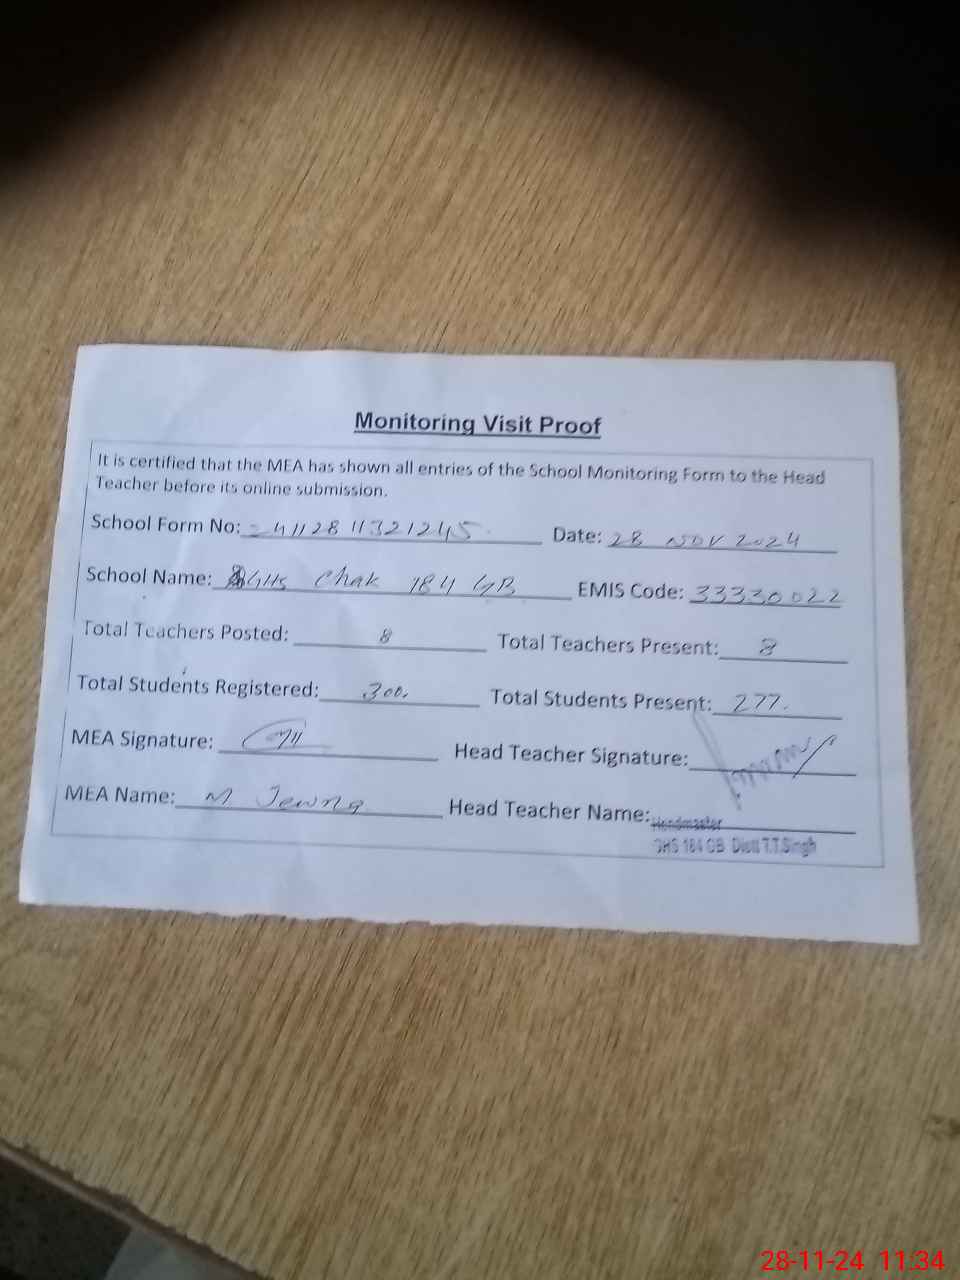 Monitoring Visit Proof
It is certified that the MEA has shown all entries of the School Monitoring Form to the Head
Teacher before its online submission.
School Form No: 2411281321245 Date: 28 NOV 2024
School Name: GHS Chak 184 GB EMIS Code: 33330022
Total Teachers Posted: 8 Total Teachers Present: 8
Total Students Registered: 300. Total Students Present: 277.
MEA Signature: Head Teacher Signature:
MEA Name: M Head Teacher Name:
Headmaster
GHS 184 GB Distt T.T.Singh
28-11-24 11:34